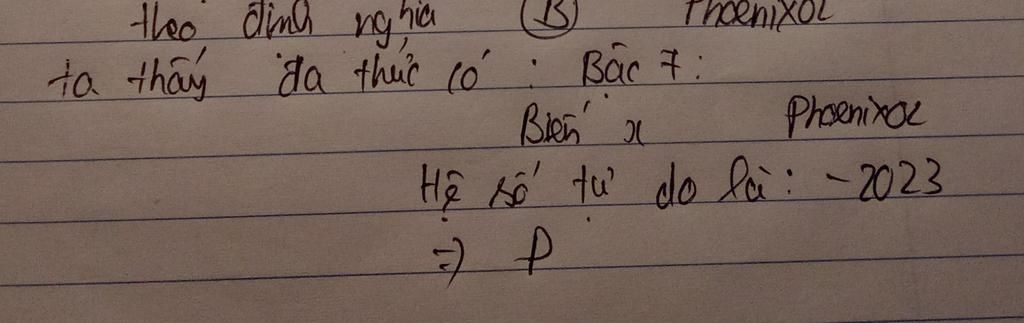 theo định nghĩa (B) Phoenixoz
ta thấy đa thức có : Bậc 7 :
Biến x Phoenixoz
Hệ số tự do là : - 2023
=> D